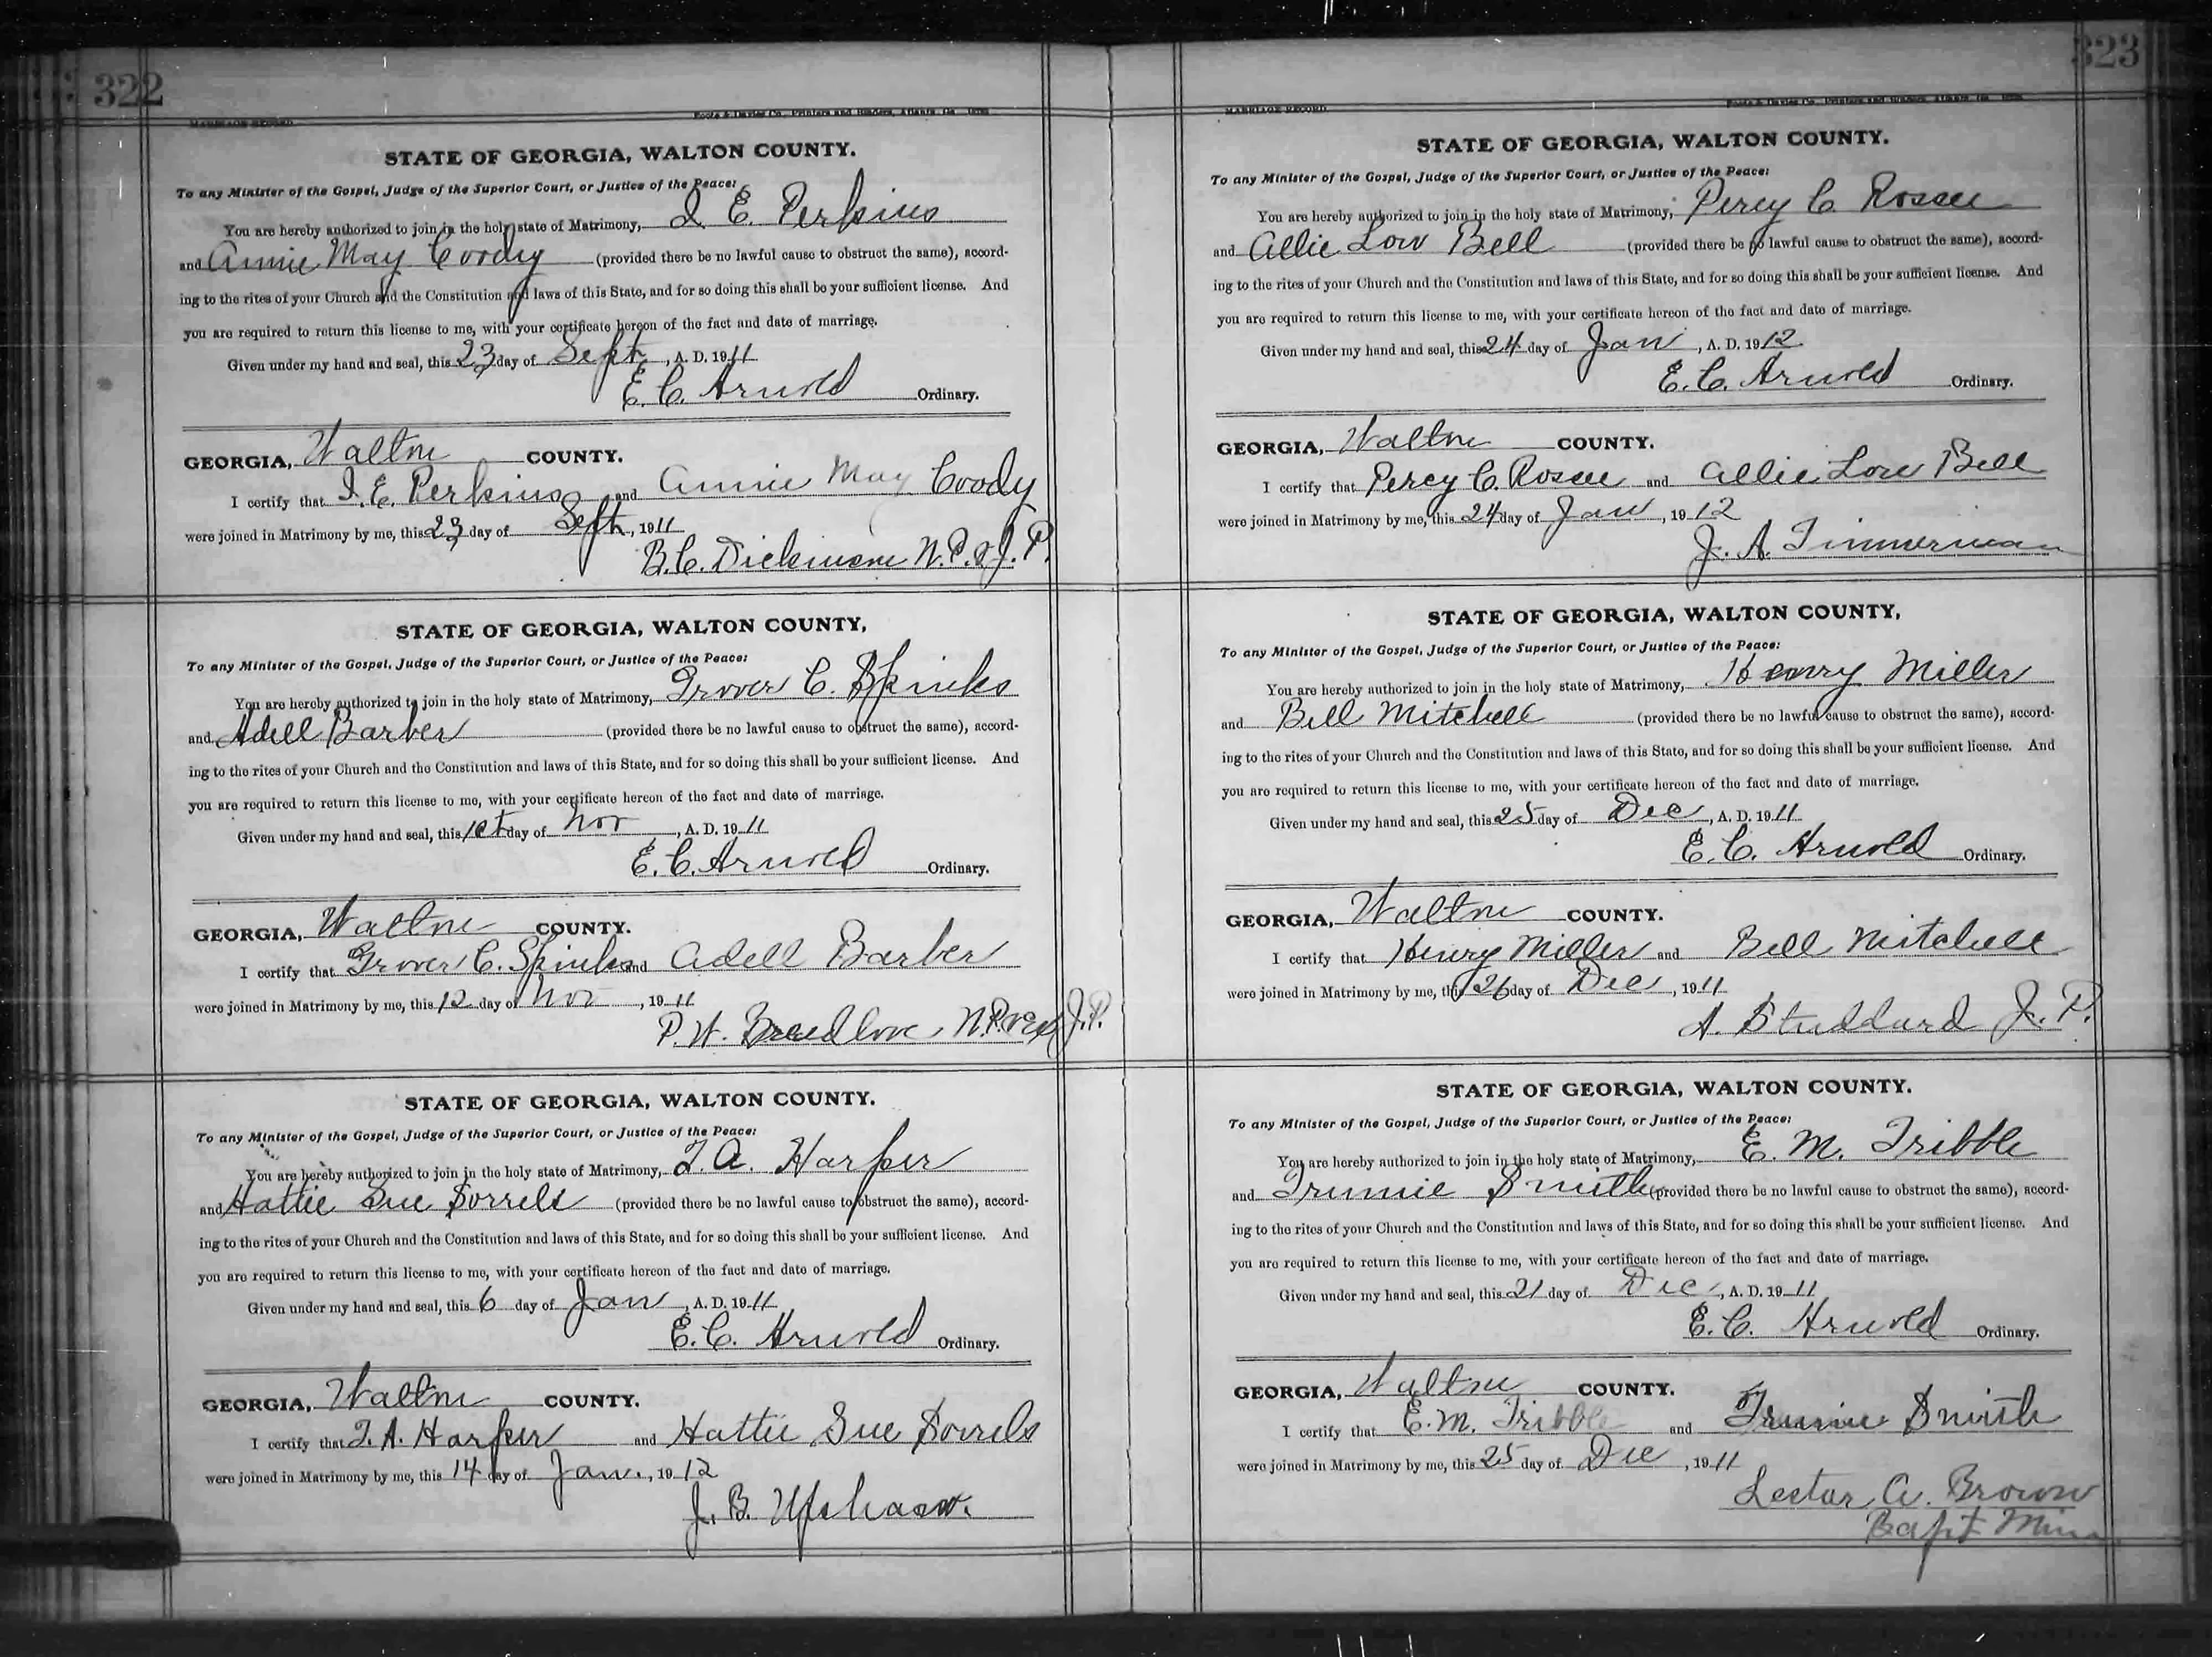 322
MARRIAGE RECORD
Foote & Davies Co., Printers and Binders, Atlanta, Ga.
STATE OF GEORGIA, WALTON COUNTY.
To any Minister of the Gospel, Judge of the Superior Court, or Justice of the Peace:
You are hereby authorized to join in the holy state of Matrimony, I. E. Perkins
and Annie May Coody (provided there be no lawful cause to obstruct the same), accord-
ing to the rites of your Church and the Constitution and laws of this State, and for so doing this shall be your sufficient license. And
you are required to return this license to me, with your certificate hereon of the fact and date of marriage.
Given under my hand and seal, this 23 day of Sept, A. D. 1911
E. C. Arnold Ordinary.
GEORGIA, Walton COUNTY.
I certify that I. E. Perkins and Annie May Coody
were joined in Matrimony by me, this 23 day of Sept, 1911
B. C. Dickinson N. P. & J. P.
STATE OF GEORGIA, WALTON COUNTY,
To any Minister of the Gospel, Judge of the Superior Court, or Justice of the Peace:
You are hereby authorized to join in the holy state of Matrimony, Grover C. Spinks
and Adell Barber (provided there be no lawful cause to obstruct the same), accord-
ing to the rites of your Church and the Constitution and laws of this State, and for so doing this shall be your sufficient license. And
you are required to return this license to me, with your certificate hereon of the fact and date of marriage.
Given under my hand and seal, this day of Nov, A. D. 1911
E. C. Arnold Ordinary.
GEORGIA, Walton COUNTY.
I certify that Grover C. Spinks and Adell Barber
were joined in Matrimony by me, this 12 day of Nov, 1911
P. W. Breedlove, N. P. & Ex J. P.
STATE OF GEORGIA, WALTON COUNTY.
To any Minister of the Gospel, Judge of the Superior Court, or Justice of the Peace:
You are hereby authorized to join in the holy state of Matrimony, T. A. Harper
and Hattie Sue Sorrels (provided there be no lawful cause to obstruct the same), accord-
ing to the rites of your Church and the Constitution and laws of this State, and for so doing this shall be your sufficient license. And
you are required to return this license to me, with your certificate hereon of the fact and date of marriage.
Given under my hand and seal, this 6 day of Jan, A. D. 1911
E. C. Arnold Ordinary.
GEORGIA, Walton COUNTY.
I certify that T. A. Harper and Hattie Sue Sorrels
were joined in Matrimony by me, this 14 day of Jan., 1912
J. B. Upshaw.
323
MARRIAGE RECORD
Foote & Davies Co., Printers and Binders, Atlanta, Ga.
STATE OF GEORGIA, WALTON COUNTY.
To any Minister of the Gospel, Judge of the Superior Court, or Justice of the Peace:
You are hereby authorized to join in the holy state of Matrimony, Percy C. Rosser
and Allie Lou Bell (provided there be no lawful cause to obstruct the same), accord-
ing to the rites of your Church and the Constitution and laws of this State, and for so doing this shall be your sufficient license. And
you are required to return this license to me, with your certificate hereon of the fact and date of marriage.
Given under my hand and seal, this 24 day of Jan, A. D. 1912
E. C. Arnold Ordinary.
GEORGIA, Walton COUNTY.
I certify that Percy C. Rosser and Allie Lou Bell
were joined in Matrimony by me, this 24 day of Jan, 1912
J. A. Timmerman
STATE OF GEORGIA, WALTON COUNTY,
To any Minister of the Gospel, Judge of the Superior Court, or Justice of the Peace:
You are hereby authorized to join in the holy state of Matrimony, Henry Miller
and Bell Mitchell (provided there be no lawful cause to obstruct the same), accord-
ing to the rites of your Church and the Constitution and laws of this State, and for so doing this shall be your sufficient license. And
you are required to return this license to me, with your certificate hereon of the fact and date of marriage.
Given under my hand and seal, this 25 day of Dec, A. D. 1911
E. C. Arnold Ordinary.
GEORGIA, Walton COUNTY.
I certify that Henry Miller and Bell Mitchell
were joined in Matrimony by me, this 26 day of Dec, 1911
A. Studdard J. P.
STATE OF GEORGIA, WALTON COUNTY.
To any Minister of the Gospel, Judge of the Superior Court, or Justice of the Peace:
You are hereby authorized to join in the holy state of Matrimony, E. M. Tribble
and Trunie Smith (provided there be no lawful cause to obstruct the same), accord-
ing to the rites of your Church and the Constitution and laws of this State, and for so doing this shall be your sufficient license. And
you are required to return this license to me, with your certificate hereon of the fact and date of marriage.
Given under my hand and seal, this 21 day of Dec, A. D. 1911
E. C. Arnold Ordinary.
GEORGIA, Walton COUNTY.
I certify that E. M. Tribble and Trunie Smith
were joined in Matrimony by me, this 25 day of Dec, 1911
Lester A. Brown
Bapt Min